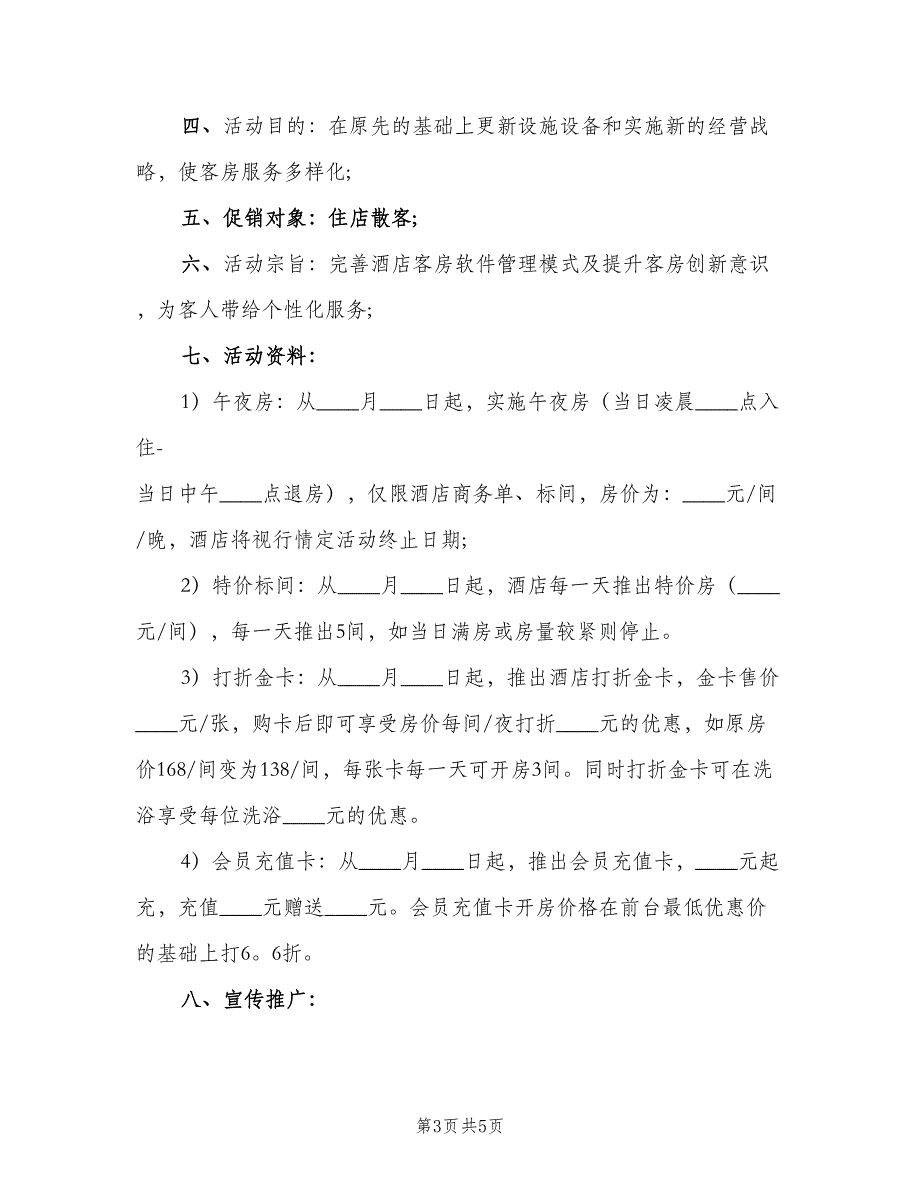 四、活动目的：在原先的基础上更新设施设备和实施新的经营战
略，使客房服务多样化;
五、促销对象：住店散客;
六、活动宗旨：完善酒店客房软件管理模式及提升客房创新意识
，为客人带给个性化服务;
七、活动资料：
1）午夜房：从____月____日起，实施午夜房（当日凌晨____点入
住-
当日中午____点退房），仅限酒店商务单、标间，房价为：____元/间
/晚，酒店将视行情定活动终止日期;
2）特价标间：从____月____日起，酒店每一天推出特价房（____
元/间），每一天推出5间，如当日满房或房量较紧则停止。
3）打折金卡：从____月____日起，推出酒店打折金卡，金卡售价
____元/张，购卡后即可享受房价每间/夜打折____元的优惠，如原房
价168/间变为138/间，每张卡每一天可开房3间。同时打折金卡可在洗
浴享受每位洗浴____元的优惠。
4）会员充值卡：从____月____日起，推出会员充值卡，____元起
充，充值____元赠送____元。会员充值卡开房价格在前台最低优惠价
的基础上打6。6折。
八、宣传推广：
第3页 共5页